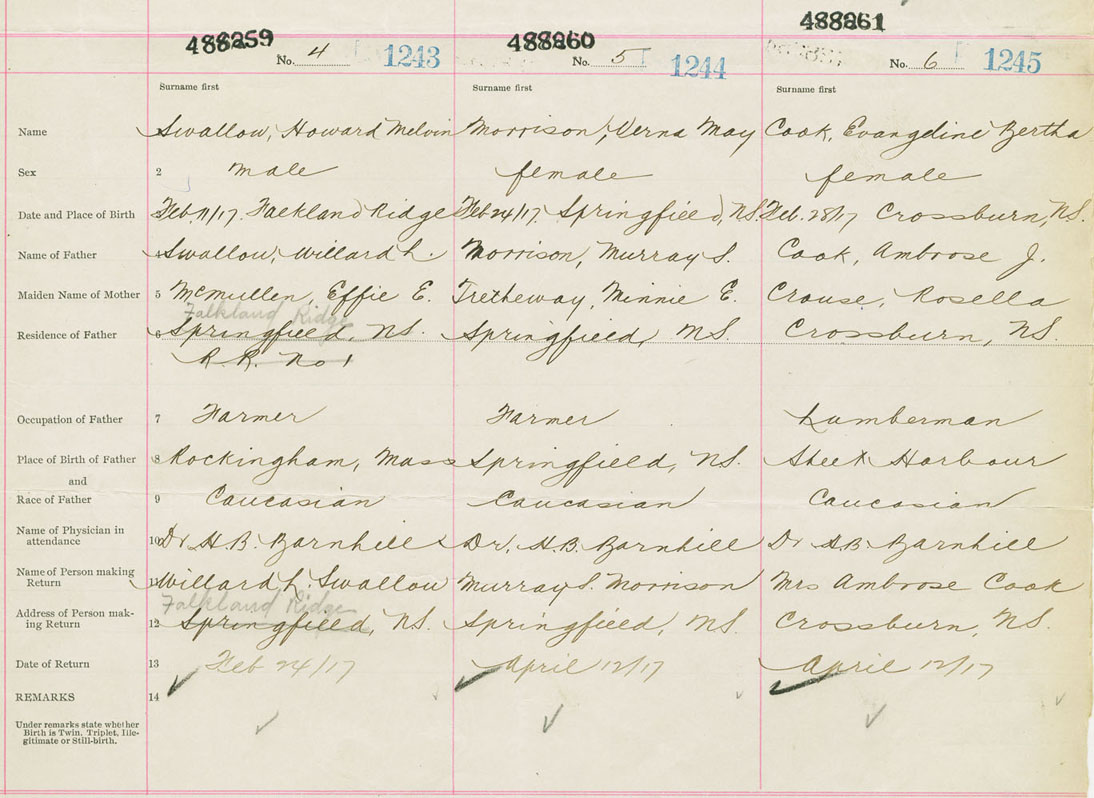 488259 488260 488261
No. 4 1243 No. 5 1244 No. 6 1245
Surname first Surname first Surname first
Name Swallow, Howard Melvin Morrison, Verna May Cook, Evangeline Bertha
Sex 2 male female female
Date and Place of Birth Feb 11/17. Falkland Ridge Feb 24/17. Springfield, N.S. Feb. 28/17 Crossburn, N.S.
Name of Father Swallow, Willard L. Morrison, Murray S. Cook, Ambrose J.
Maiden Name of Mother 5 McMullen, Effie E. Tretheway, Minnie E. Crouse, Rosella
Falkland Ridge
Residence of Father 6 Springfield, N.S. Springfield, N.S. Crossburn, N.S.
R.R. No 1
Occupation of Father 7 Farmer Farmer Lumberman
Place of Birth of Father 8 Rockingham, Mass Springfield, N.S. Sheet Harbour
and
Race of Father 9 Caucasian Caucasian Caucasian
Name of Physician in
attendance 10 Dr H.B. Barnhill Dr. H.B. Barnhill Dr H.B. Barnhill
Name of Person making
Return 11 Willard L. Swallow Murray S. Morrison Mrs Ambrose Cook
Falkland Ridge
Address of Person mak-
ing Return 12 Springfield, N.S. Springfield, N.S. Crossburn, N.S.
Date of Return 13 Feb 24/17 April 12/17 April 12/17
REMARKS 14
Under remarks state whether
Birth is Twin. Triplet, Ille-
gitimate or Still-birth.